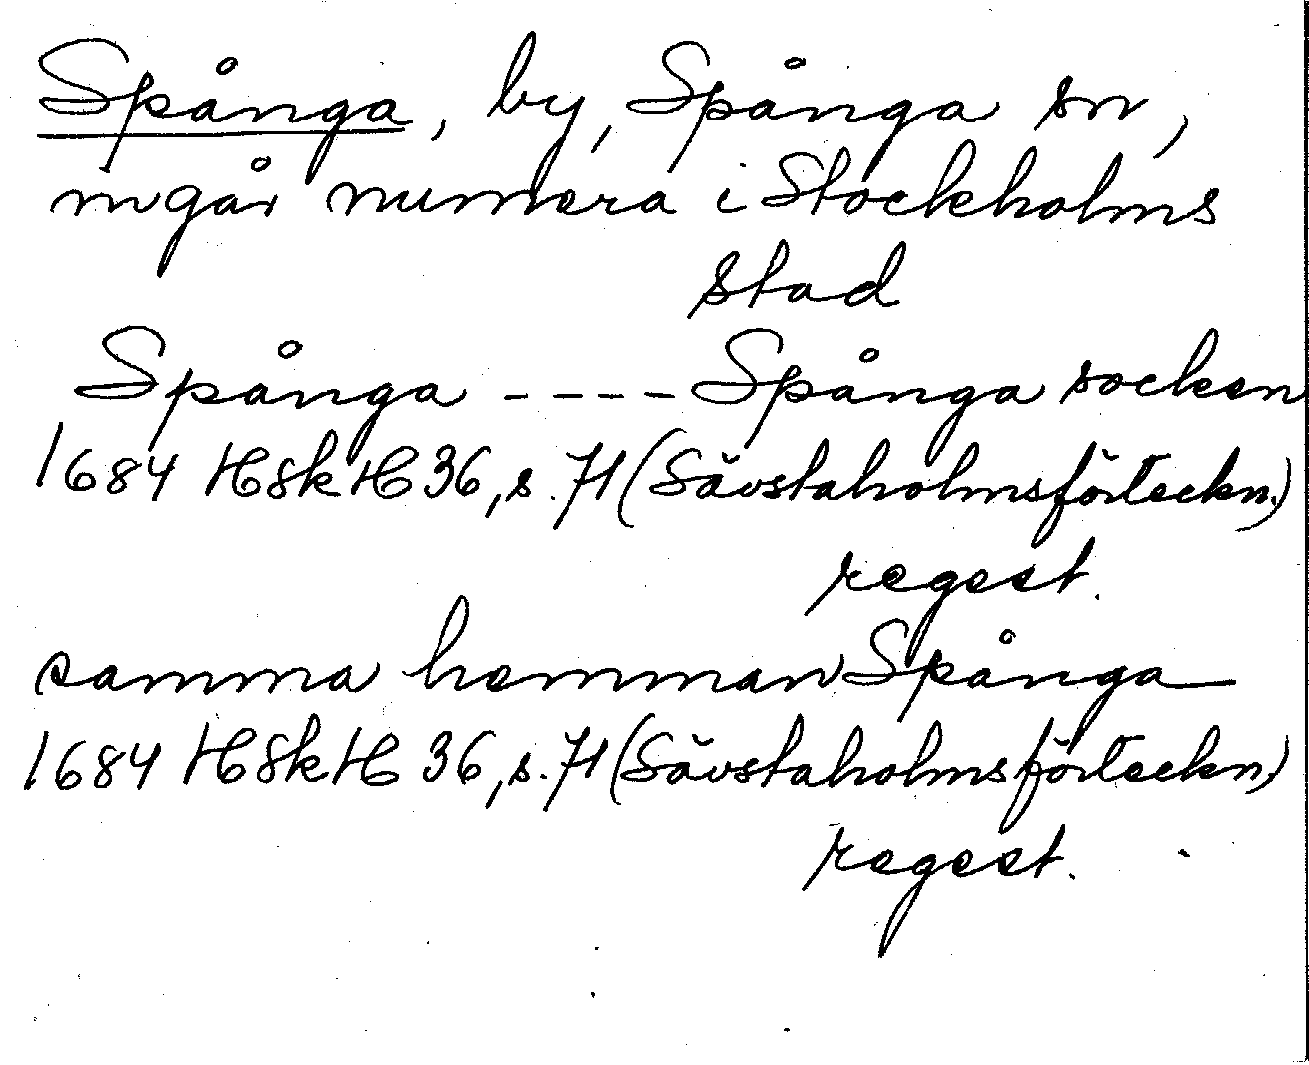 Spånga, by, Spånga sn,
ingår numera i Stockholms
stad
Spånga ---- Spånga socken
1684 HSkH 36, s. 71 (Sävstaholmsförteckn.)
regest.
samma hemman Spånga
1684 HSkH 36, s. 71 (Sävstaholmsförteckn.)
regest.